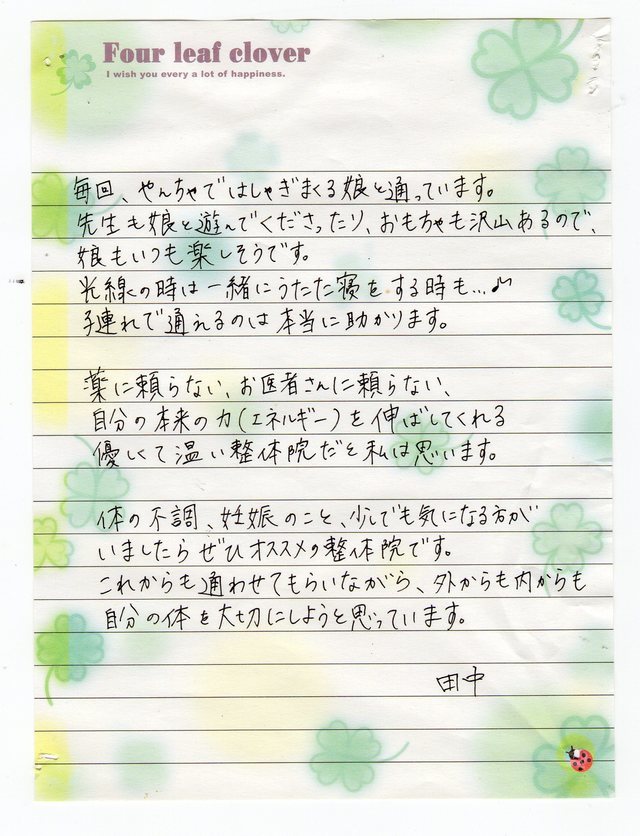 Four leaf clover
I wish you every a lot of happiness.
毎回、やんちゃではしゃぎまくる娘と通っています。
先生も娘と遊んでくださったり、おもちゃも沢山あるので、
娘もいつも楽しそうです。
光線の時は一緒にうたた寝をする時も…♪
子連れで通えるのは本当に助かります。
薬に頼らない、お医者さんに頼らない、
自分の本来の力(エネルギー)を伸ばしてくれる
優しくて温い整体院だと私は思います。
体の不調、妊娠のこと、少しでも気になる方が
いましたらぜひオススメの整体院です。
これからも通わせてもらいながら、外からも内からも
自分の体を大切にしようと思っています。
田中